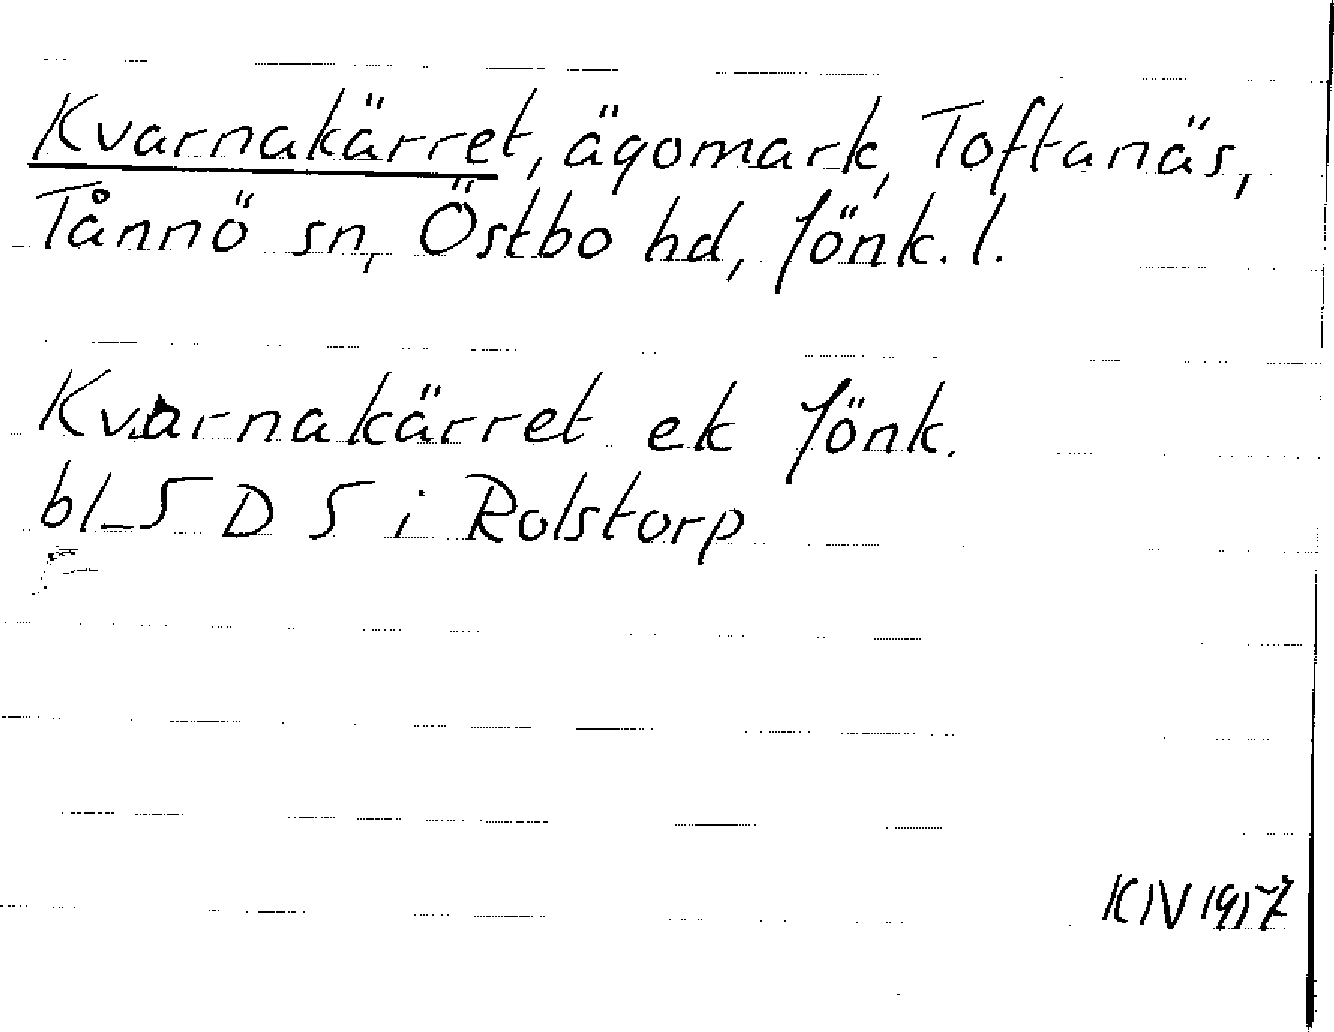 Kvarnakärret, ägomark, Toftanäs,
Tånnö sn, Östbo hd, Jönk. l.
Kvarnakärret ek Jönk.
bl 5 D 5 i Rolstorp